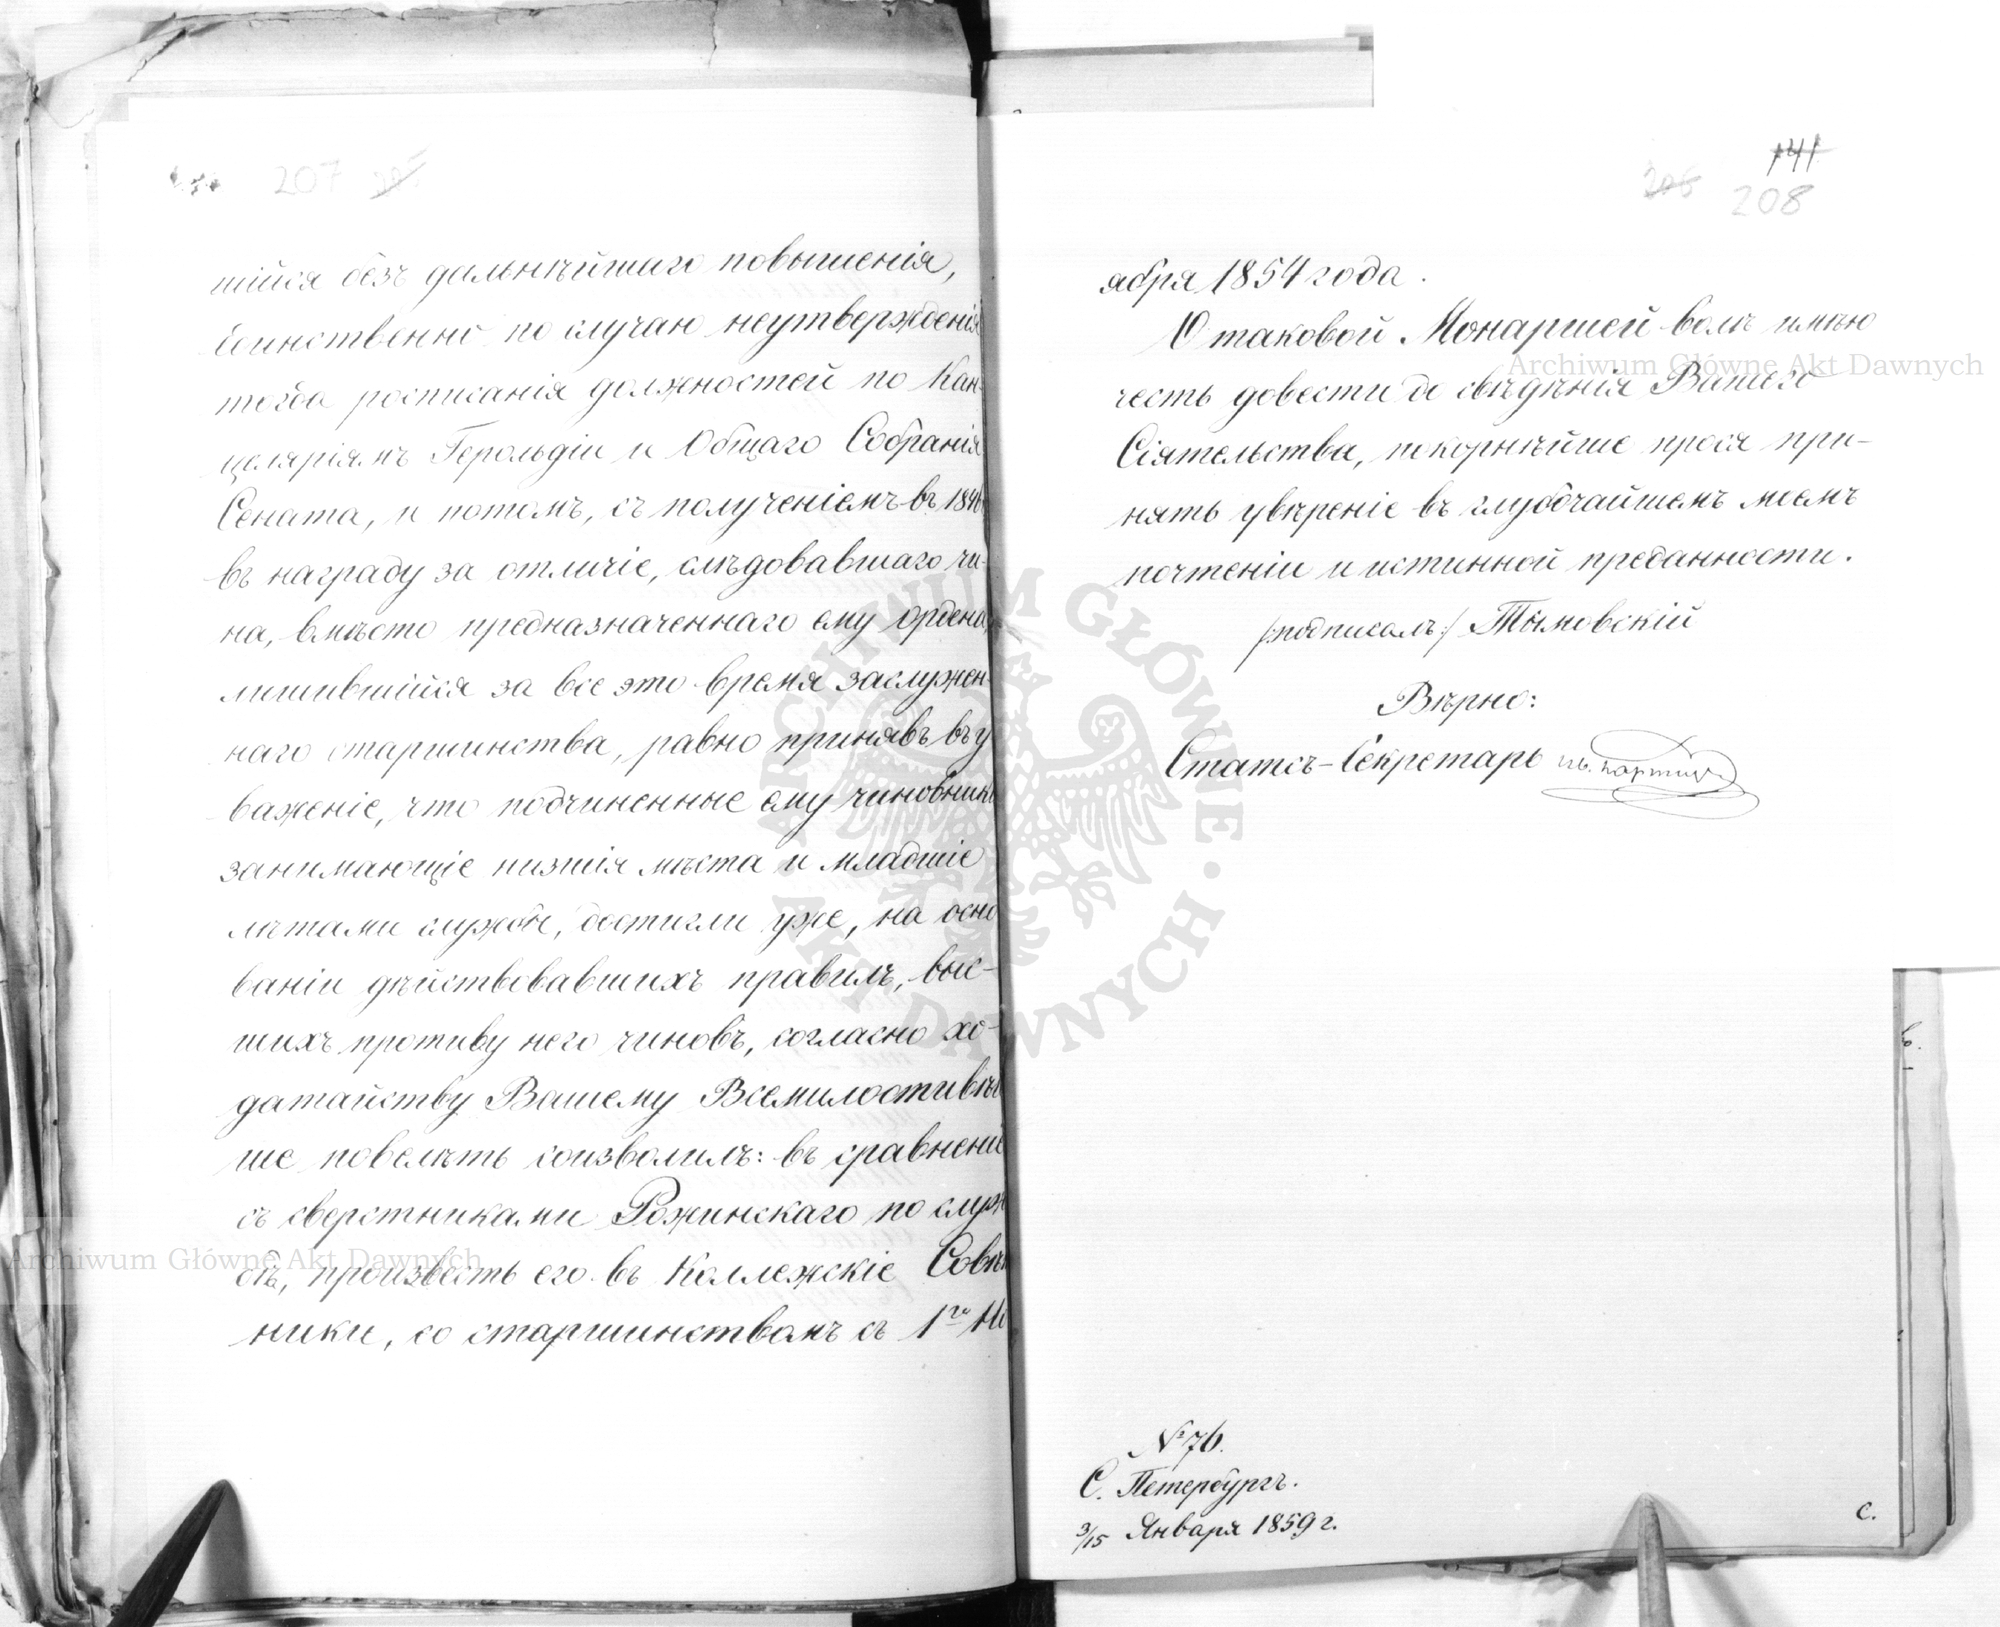 207
шійся безъ дальнѣйшаго повышенія,
единственно по случаю неутвержденія
тогда росписанія должностей по Кан-
целяріямъ Герольдіи и Общаго Собранія
Сената, и потомъ, съ полученіемъ въ 1846
въ награду за отличіе, слѣдовавшаго чи-
на, вмѣсто предназначеннаго ему ордена,
лишившійся за все это время заслужен-
наго старшинства, равно принявъ въ у
важеніе, что подчиненные ему чиновники
занимающіе низшія мѣста и младшіе
лѣтами службы, достигли уже, на осно
ваніи дѣйствовавшихъ правилъ, выс-
шихъ противу него чиновъ, согласно хо-
датайству Вашему Всемилостивѣй
ше повелѣть соизволилъ: въ сравненіе
съ сверстниками Рожинскаго по служ
бѣ, произвесть его въ Коллежскіе Совѣт
ники, со старшинствомъ съ 1го Но
141
206 208
ября 1854 года.
О таковой Монаршей волѣ имѣю
честь довести до свѣдѣнія Вашего
Сіятельства, покорнѣйше прося при-
нять увѣреніе въ глубочайшемъ моемъ
почтеніи и истинной преданности.
/подписалъ:/ Тымовскій
Вѣрно:
Статсъ-Секретарь
№ 76.
С. Петербургъ.
3/15 Января 1859 г.
С.
Archiwum Główne Akt Dawnych
Archiwum Główne Akt Dawnych
ARCHIWUM GŁÓWNE · AKT DAWNYCH ·